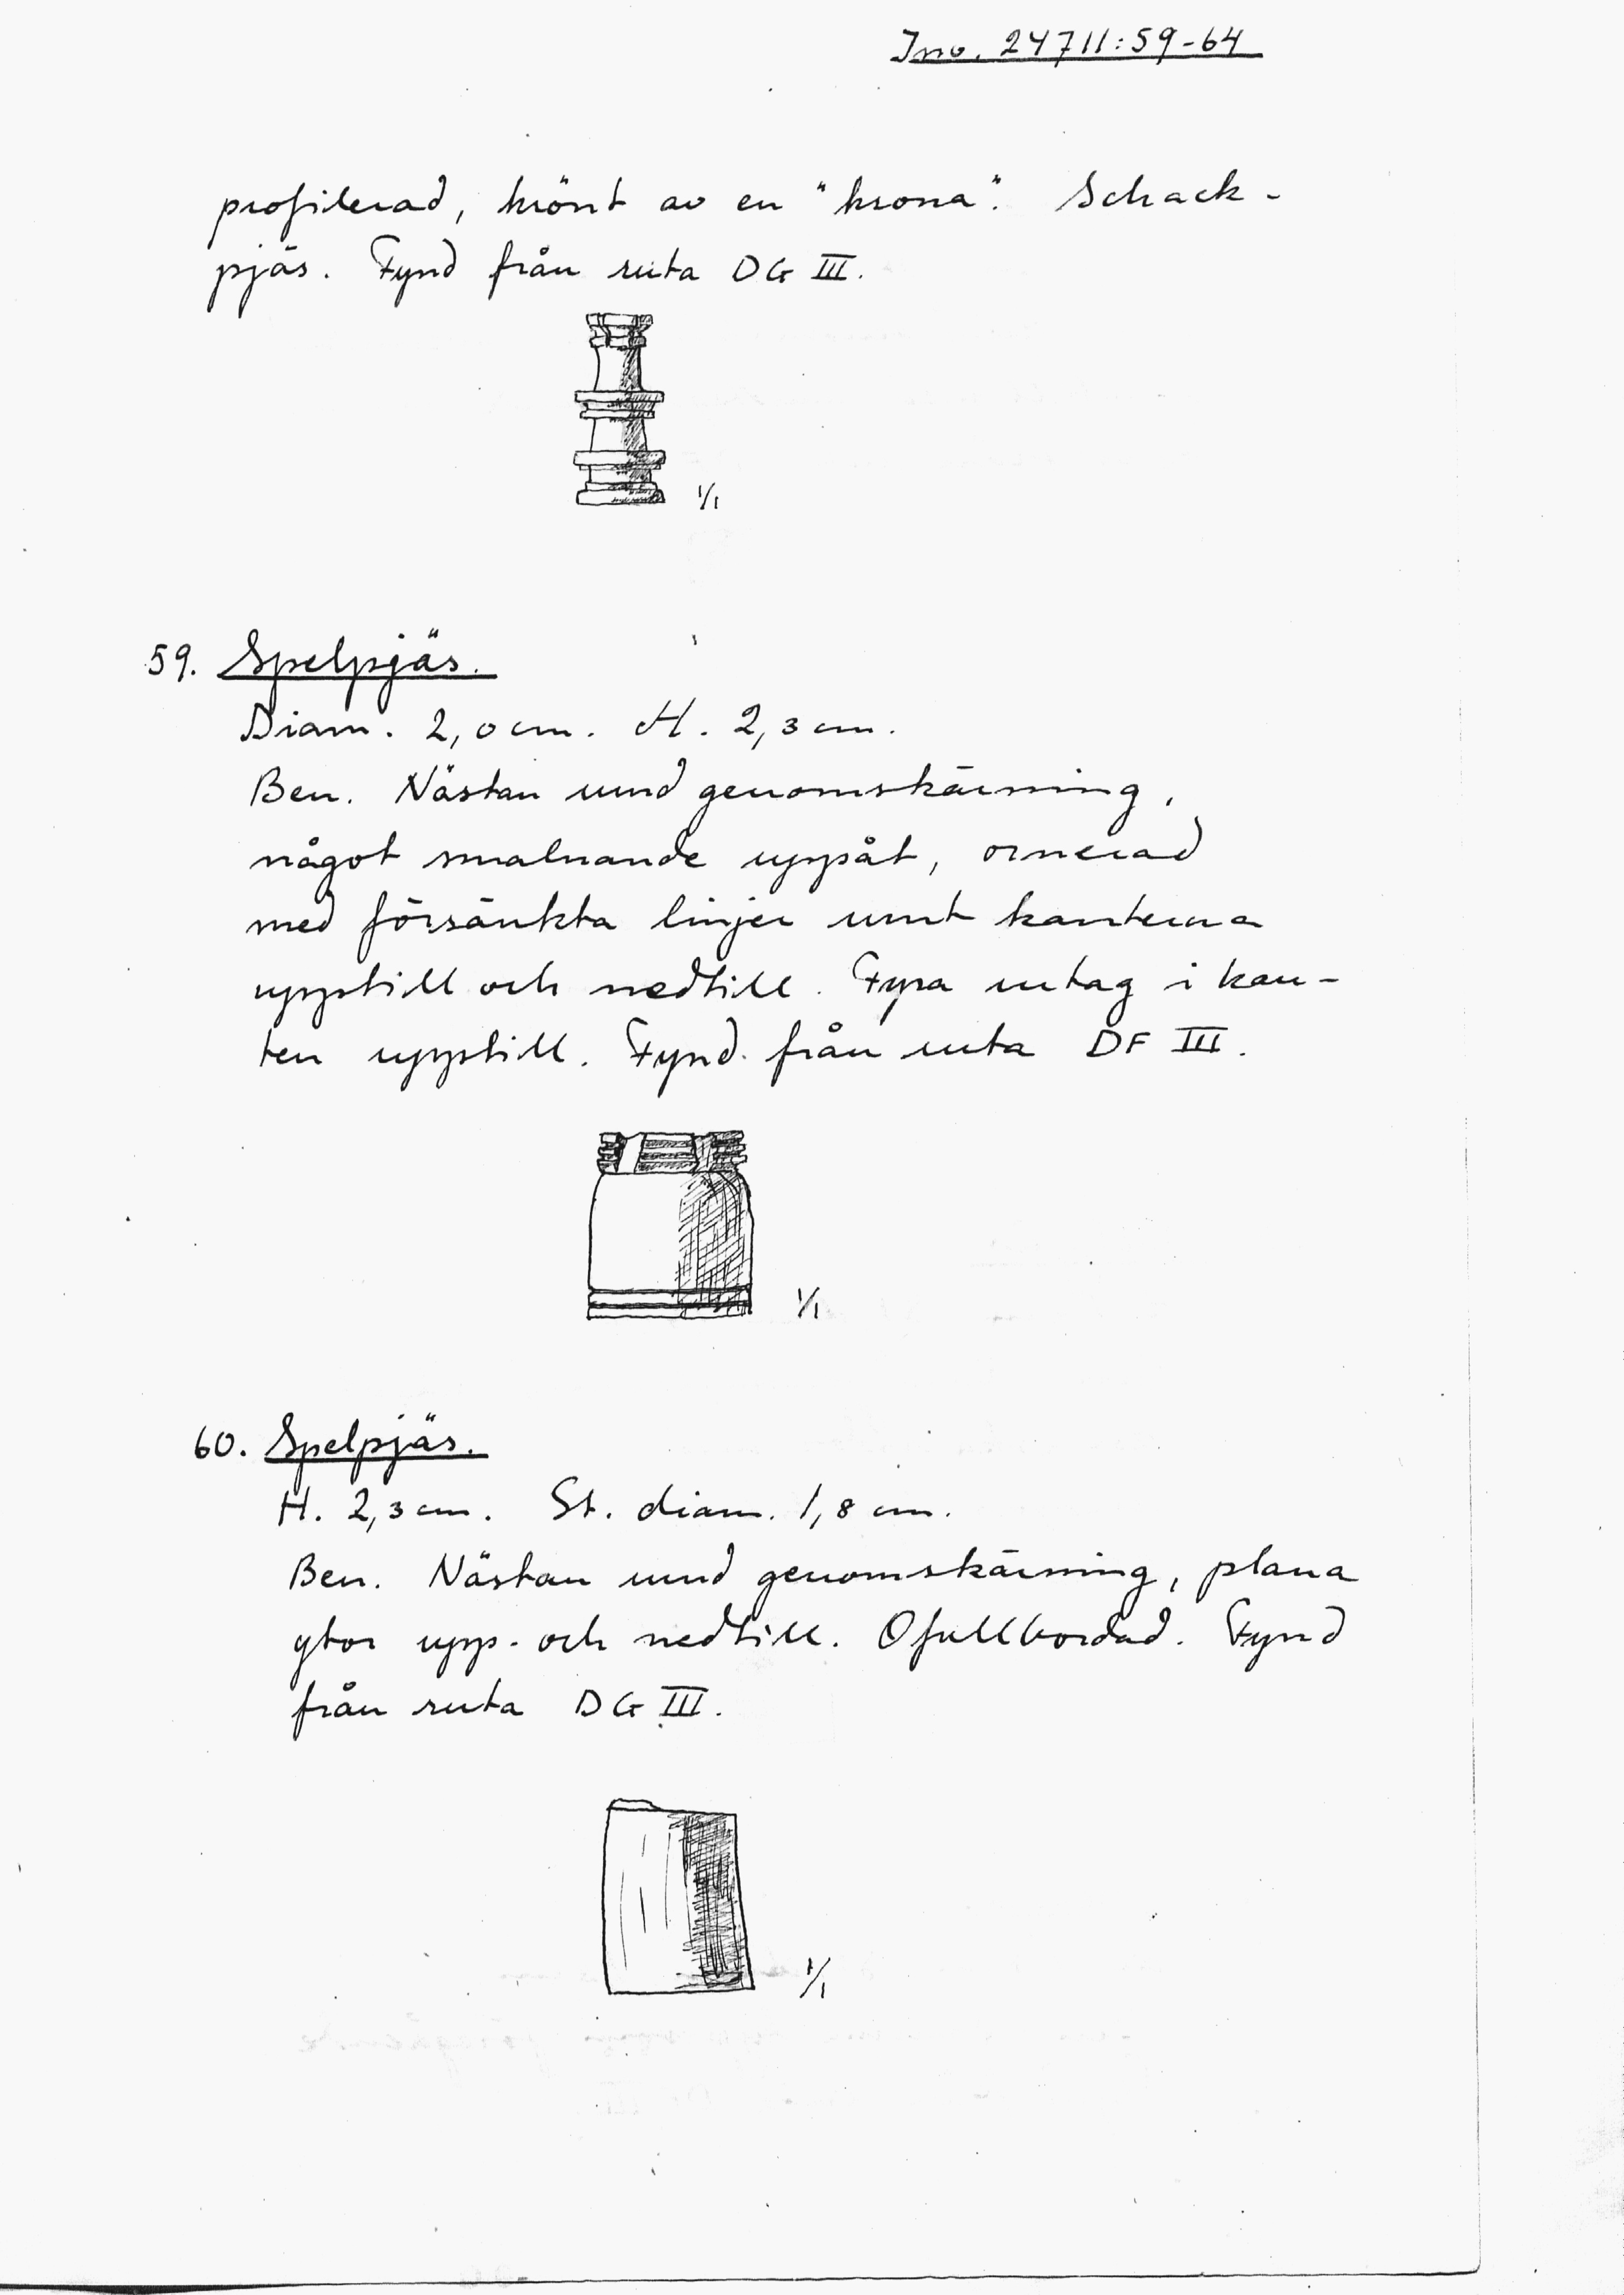 Inv. 24711:59-64
profilerad, krönt av en "krona". Schack-
pjäs. Fynd från ruta DG III.
1/1
59. Spelpjäs.
Diam. 2,0 cm. H. 2,3 cm.
Ben. Nästan rund genomskärning,
något smalnande uppåt, ornerad
med försänkta linjer runt kanterna
upptill och nedtill. Fyra urtag i kan-
ten upptill. Fynd från ruta DF III.
1/1
60. Spelpjäs.
H. 2,3 cm. St. diam. 1,8 cm.
Ben. Nästan rund genomskärning, plana
ytor upp- och nedtill. Ofullbordad. Fynd
från ruta DG III.
1/1